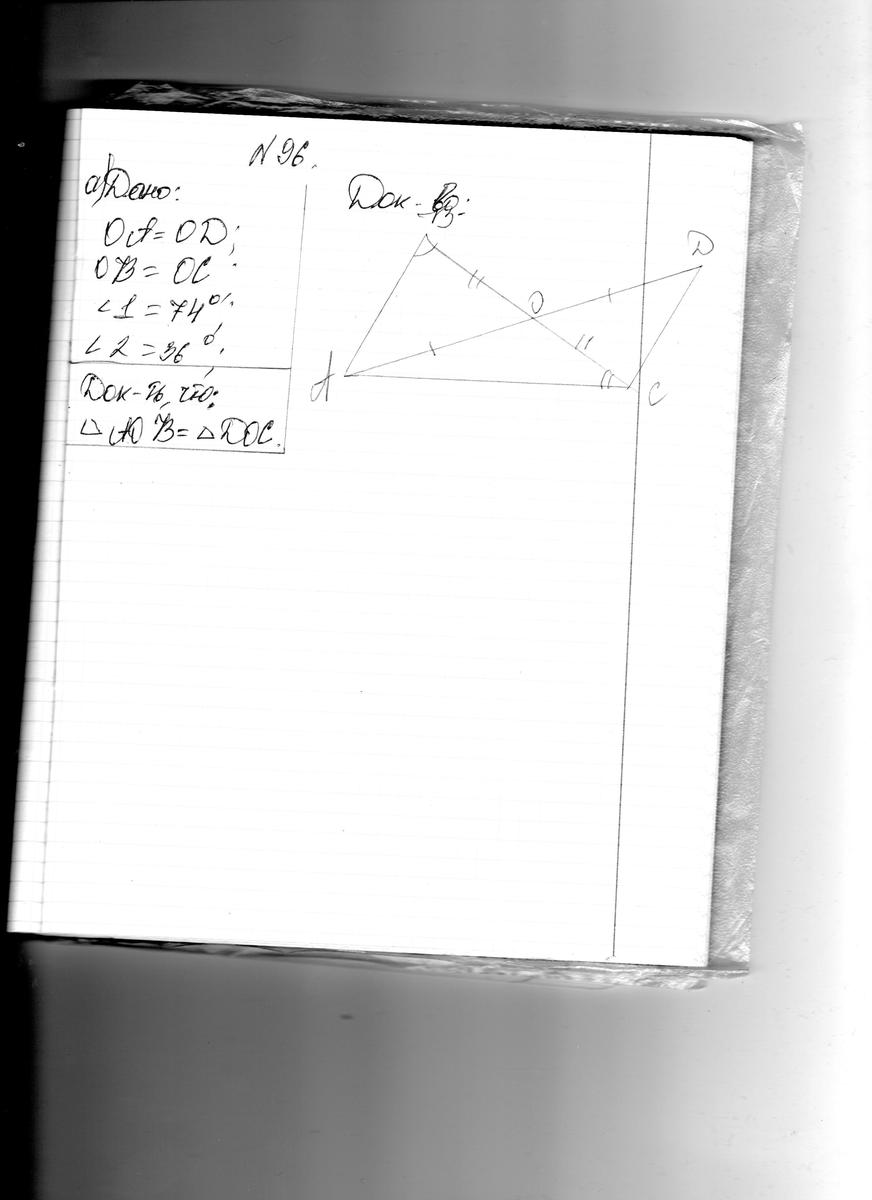 N 96.
а) Дано:
OA = OD;
OB = OC
∠1 = 74°;
∠2 = 36°;
Док-ть, что:
△AOB = △DOC.
Док-во:
B
O
D
A
C